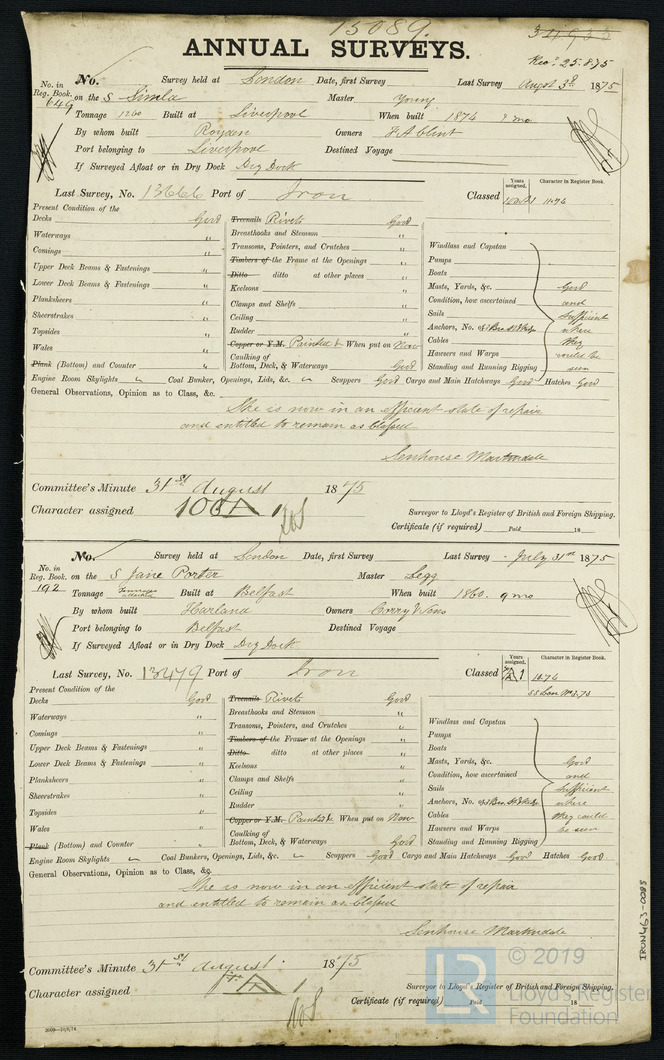 15089.
34933
ANNUAL SURVEYS.
Rec? 25.8.75
No. in Reg. Book. 649
No. Survey held at London Date, first Survey Last Survey Augst 3d 1875
on the S Simla Master Young
Tonnage 1260 Built at Liverpool When built 1874 8 mo
By whom built Royden Owners
Port belonging to Liverpool Destined Voyage
If Surveyed Afloat or in Dry Dock Dry Dock
Last Survey, No. 13666 Port of Iron Classed Years assigned, Character in Register Book.
Present Condition of the
Decks Good
Waterways "
Comings "
Upper Deck Beams & Fastenings "
Lower Deck Beams & Fastenings "
Planksheers "
Sheerstrakes "
Topsides "
Wales "
Plank (Bottom) and Counter "
Treenails Rivets Good
Breasthooks and Stemson "
Transoms, Pointers, and Crutches "
Timbers of the Frame at the Openings "
Ditto ditto at other places "
Keelsons "
Clamps and Shelfs "
Ceiling "
Rudder "
Copper or Y.M. Painted & When put on Now
Caulking of
Bottom, Deck, & Waterways Good
Windlass and Capstan
Pumps
Boats
Masts, Yards, &c.
Condition, how ascertained
Sails
Anchors, No. of
Cables
Hawsers and Warps
Standing and Running Rigging
Good
and
Sufficient
where
they
could be
seen
Engine Room Skylights " Coal Bunker, Openings, Lids, &c. " Scuppers Good Cargo and Main Hatchways Good Hatches Good
General Observations, Opinion as to Class, &c.
She is now in an efficient state of repair
and entitled to remain as Classed
Senhouse Martindale
Committee's Minute 31st August 1875
Character assigned 100 A 1
Surveyor to Lloyd's Register of British and Foreign Shipping.
Certificate (if required) Paid 18
No. in Reg. Book. 192
No. Survey held at London Date, first Survey Last Survey July 31st 1875
on the S Jane Porter Master Legg
Tonnage Built at Belfast When built 1860. 9 mo
By whom built Harland Owners Corry & Sons
Port belonging to Belfast Destined Voyage
If Surveyed Afloat or in Dry Dock Dry Dock
Last Survey, No. 13479 Port of Iron Classed Years assigned, A 1 Character in Register Book.
Present Condition of the
Decks Good
Waterways "
Comings "
Upper Deck Beams & Fastenings "
Lower Deck Beams & Fastenings "
Planksheers "
Sheerstrakes "
Topsides "
Wales "
Plank (Bottom) and Counter "
Treenails Rivets Good
Breasthooks and Stemson "
Transoms, Pointers, and Crutches "
Timbers of the Frame at the Openings "
Ditto ditto at other places "
Keelsons "
Clamps and Shelfs "
Ceiling "
Rudder "
Copper or Y.M. Painted & When put on Now
Caulking of
Bottom, Deck, & Waterways Good
Windlass and Capstan
Pumps
Boats
Masts, Yards, &c.
Condition, how ascertained
Sails
Anchors, No. of
Cables
Hawsers and Warps
Standing and Running Rigging
Good
and
Sufficient
where
they could
be seen
Engine Room Skylights " Coal Bunkers, Openings, Lids, &c. " Scuppers Good Cargo and Main Hatchways Good Hatches Good.
General Observations, Opinion as to Class, &c.
She is now in an efficient state of repair
and entitled to remain as Classed
Senhouse Martindale
Committee's Minute 31st August 1875
Character assigned A 1
Surveyor to Lloyd's Register of British and Foreign Shipping.
Certificate (if required) Paid 18
IRON463-0085
© 2019
LR
Lloyd's Register
Foundation